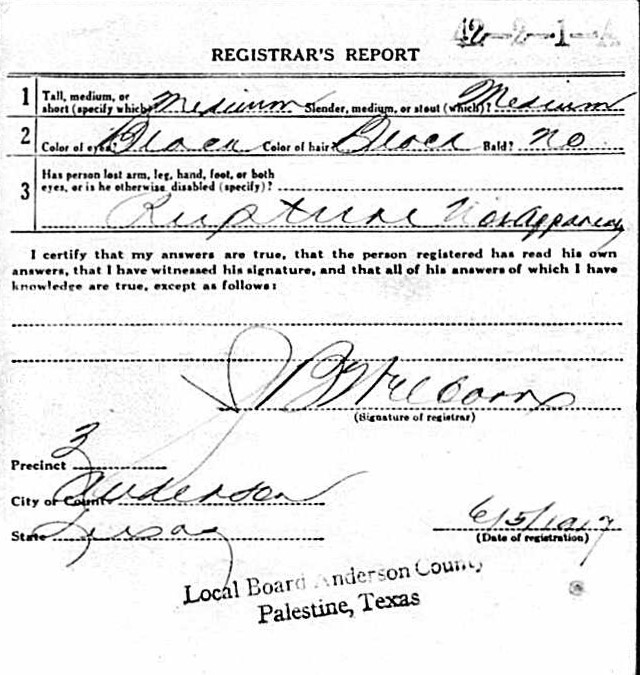 42-2-1-A
REGISTRAR'S REPORT
1 Tall, medium, or short (specify which) Medium Slender, medium, or stout (which)? Medium
2 Color of eyes Black Color of hair Black Bald? no
3 Has person lost arm, leg, hand, foot, or both
eyes, or is he otherwise disabled (specify)?
Rupture Not apparent
I certify that my answers are true, that the person registered has read his own
answers, that I have witnessed his signature, and that all of his answers of which I have
knowledge are true, except as follows:
J B Williams
(Signature of registrar)
Precinct 3
City or County Anderson
State Texas
6/5/1917
(Date of registration)
Local Board Anderson County
Palestine, Texas